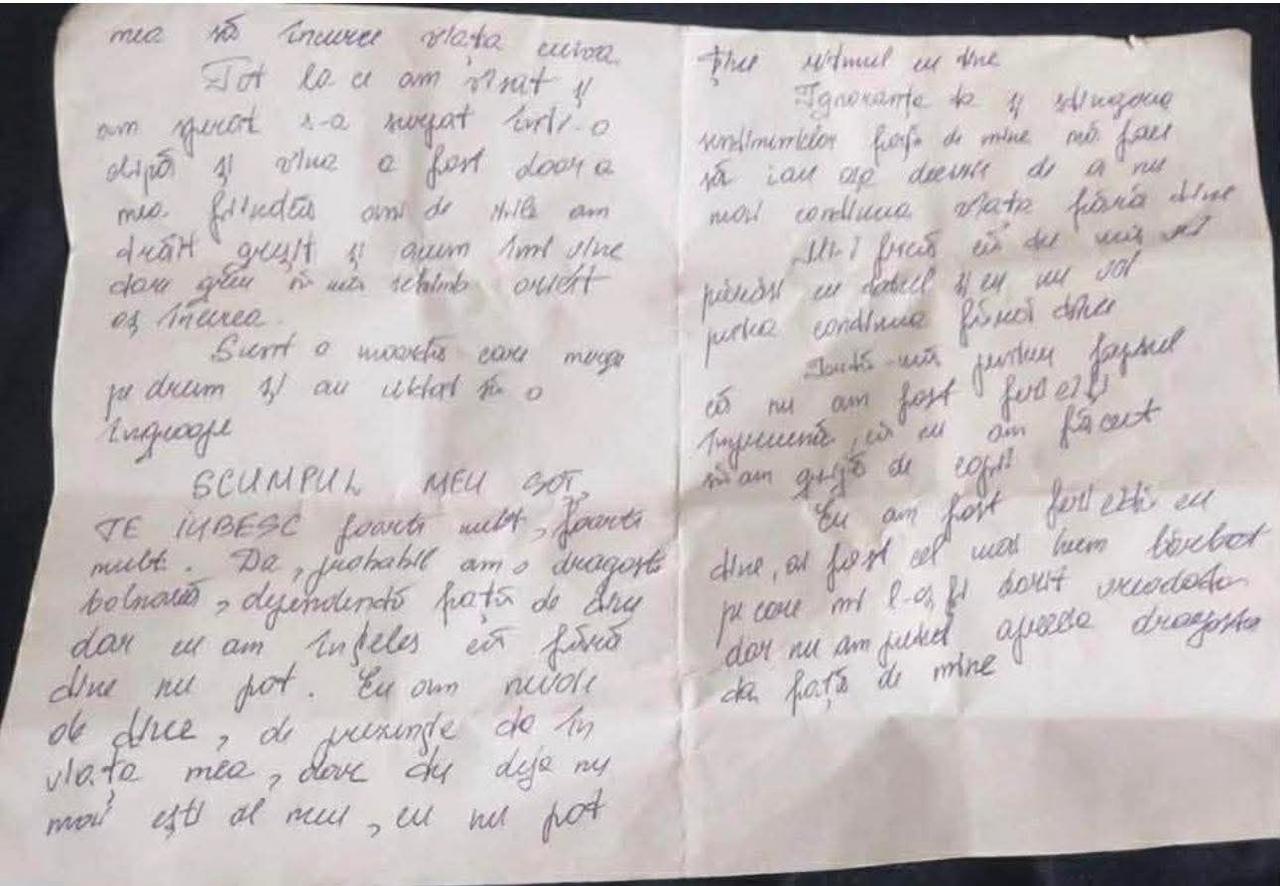 mea să încurce viața cuiva.
Tot la ce am visat și
am sperat s-a surpat într-o
clipă și vina a fost doar a
mea fiindcă ani de zile am
trăit greșit și acum îmi vine
dare greu să mă schimb oricât
aș încerca.
Sunt o moartă care merge
pe drum și au uitat să o
îngroape
SCUMPUL MEU SOȚ,
TE IUBESC foarte mult, foarte
mult. Da, probabil am o dragoste
bolnavă, dependentă față de tine
dar eu am înțeles că fără
tine nu pot. Eu am nevoie
de tine, de prezența ta în
viața mea, dare tu deja nu
mai ești al meu, eu nu pot
ține ritmul cu tine
Ignoranța ta și stingerea
sentimentelor față de mine mă face
să iau așa decizie de a nu
mai continua viața fără tine
Mi-i frică că tu mă vei
părăsi cu totul și eu nu voi
putea continua fără tine
Iartă-mă pentru faptul
că nu am fost fericiți
împreună, că eu am făcut
să am grijă de copii
Eu am fost fericită cu
tine, ai fost cel mai bun bărbat
pe care mi l-aș fi dorit vreodată
dar nu am putut aprecia dragostea
ta față de mine